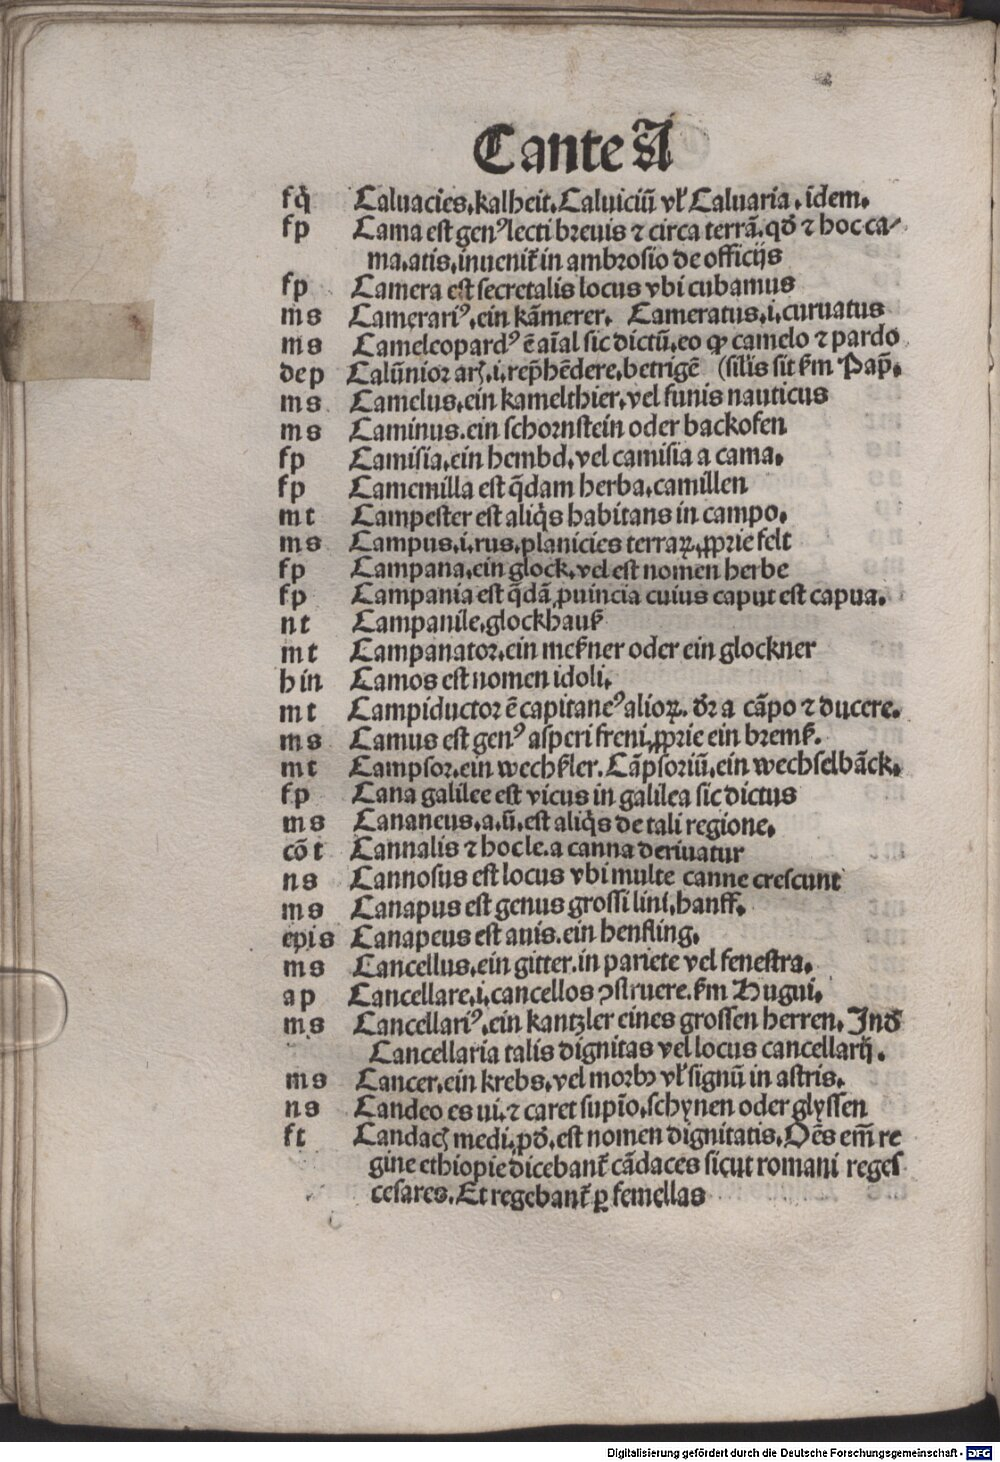 C ante A
fq̇ Caluacies.kalheit.Caluiciū vl' Caluaria.idem.
fp Cama est genꝰ lecti breuis ⁊ circa terrā.qđ ⁊ hoc ca⸗
ma.atis.inuenit̄ in ambrosio de officijs
fp Camera est secretalis locus vbi cubamus
ms Camerariꝰ.ein kāmerer. Cameratus.i.curuatus
ms Cameleopardꝰ ē aīal sic dictū.eo ꝙ camelo ⁊ pardo
dep Calūnior arꝭ.i.rep̄hēdere.betrigē (silis sit ẜm Pap̄.
ms Camelus.ein kamelthier.vel funis nauticus
ms Caminus.ein schornstein oder backofen
fp Camisia.ein hembd.vel camisia a cama.
fp Camemilla est q̄dam herba.camillen
mt Campester est aliq̇s habitans in campo.
ms Campus.i.rus.planicies terraꝝ.ꝓprie felt
fp Campana.ein glock.vel est nomen herbe
fp Campania est q̄dā ꝓuincia cuius caput est capua.
nt Campanile.glockhauß
mt Campanator.ein meßner oder ein glockner
hin Camos est nomen idoli.
mt Campiductor ē capitaneꝰ alioꝝ. đr a cāpo ⁊ ducere.
ms Camus est genꝰ asperi freni.ꝓprie ein bremß.
mt Campsor.ein wechßler.Cāpsoriū.ein wechselbānck.
fp Cana galilee est vicus in galilea sic dictus
ms Cananeus.a.ū.est aliq̇s de tali regione.
cōt Cannalis ⁊ hocle.a canna deriuatur
ns Cannosus est locus vbi multe canne crescunt
ms Canapus est genus grossi lini.hanff.
epis Canapeus est auis.ein henfling.
ms Cancellus.ein gitter.in pariete vel fenestra.
ap Cancellare.i.cancellos ꝯstruere.ẜm Hugui.
ms Cancellariꝰ.ein kantzler eines grossen herren. Inđ
Cancellaria talis dignitas vel locus cancellarij.
ms Cancer.ein krebs.vel morbꝰ vl' signū in astris.
ns Candeo es ui.⁊ caret supīo.schynen oder glyssen
ft Candacꝭ medi.ꝓđ.est nomen dignitatis.Oēs em̄ re
gine ethiopie dicebant̄ cādaces sicut romani reges
cesares.Et regebant̄ ꝑ femellas
Digitalisierung gefördert durch die Deutsche Forschungsgemeinschaft - DFG